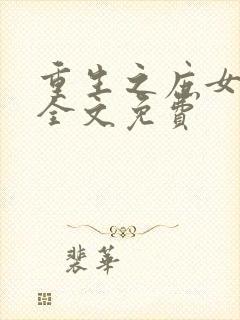 重生之庶女
全文免费
裴华